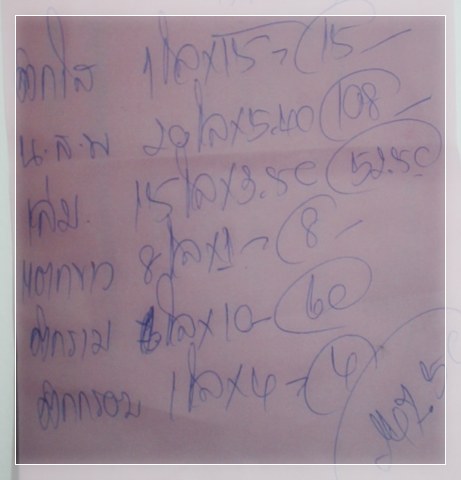 ติกใส 1โลx15- 15-
น.ส.พ 20โลx5.40 108-
เล่ม. 15โลx3.50 52.50
แตกขาว 8โลx1- 8-
ติกรวม 6โลx10- 60
ติกกรอบ 1โลx4- 4